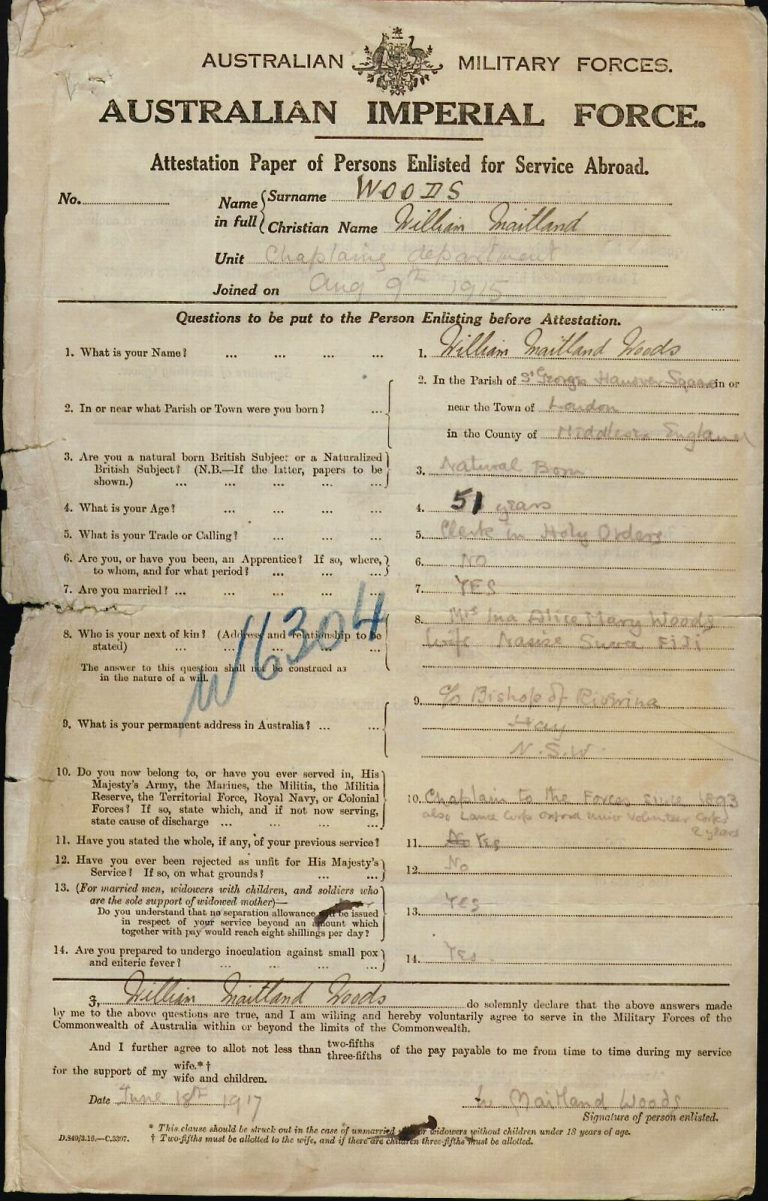 AUSTRALIAN MILITARY FORCES.
AUSTRALIAN IMPERIAL FORCE.
Attestation Paper of Persons Enlisted for Service Abroad.
No.
Name in full { Surname WOODS
Christian Name William Maitland
Unit Chaplains department
Joined on Aug 9th 1915
Questions to be put to the Person Enlisting before Attestation.
1. What is your Name? ... ... ... ... 1. William Maitland Woods
2. In or near what Parish or Town were you born? ... 2. In the Parish of St Georges Hanover Square in or
near the Town of London
in the County of Middlesex England
3. Are you a natural born British Subject or a Naturalized
British Subject? (N.B.—If the latter, papers to be
shown.) ... ... ... ... ... 3. Natural Born
4. What is your Age? ... ... ... ... 4. 51 years
5. What is your Trade or Calling? ... ... ... 5. Clerk in Holy Orders
6. Are you, or have you been, an Apprentice? If so, where,
to whom, and for what period? ... ... ... 6. NO
7. Are you married? ... ... ... ... ... 7. YES
8. Who is your next of kin? (Address and relationship to be
stated) ... ... ... ... ... 8. Mrs Ina Alice Mary Woods
wife Suva FIJI
The answer to this question shall not be construed as
in the nature of a will.
W6304
9. What is your permanent address in Australia? ... ... 9. c/o Bishop of Riverina
Hay
N.S.W.
10. Do you now belong to, or have you ever served in, His
Majesty's Army, the Marines, the Militia, the Militia
Reserve, the Territorial Force, Royal Navy, or Colonial
Forces? If so, state which, and if not now serving,
state cause of discharge ... ... ... ... 10. Chaplain to the Forces since 1893
also Lance Corp Oxford Univ Volunteer Corps
2 years
11. Have you stated the whole, if any, of your previous service? 11. No Yes
12. Have you ever been rejected as unfit for His Majesty's
Service? If so, on what grounds? ... ... 12. No
13. (For married men, widowers with children, and soldiers who
are the sole support of widowed mother)—
Do you understand that no separation allowance will be issued
in respect of your service beyond an amount which
together with pay would reach eight shillings per day? 13. YES
14. Are you prepared to undergo inoculation against small pox
and enteric fever? ... ... ... ... 14. Yes.
I, William Maitland Woods do solemnly declare that the above answers made
by me to the above questions are true, and I am willing and hereby voluntarily agree to serve in the Military Forces of the
Commonwealth of Australia within or beyond the limits of the Commonwealth.
And I further agree to allot not less than two-fifths three-fifths of the pay payable to me from time to time during my service
for the support of my wife.*† wife and children.
Date June 18th 1917 W Maitland Woods
Signature of person enlisted.
* This clause should be struck out in the case of unmarried or widowers without children under 18 years of age.
D.849/3.16.—C.5397. † Two-fifths must be allotted to the wife, and if there are children three-fifths must be allotted.